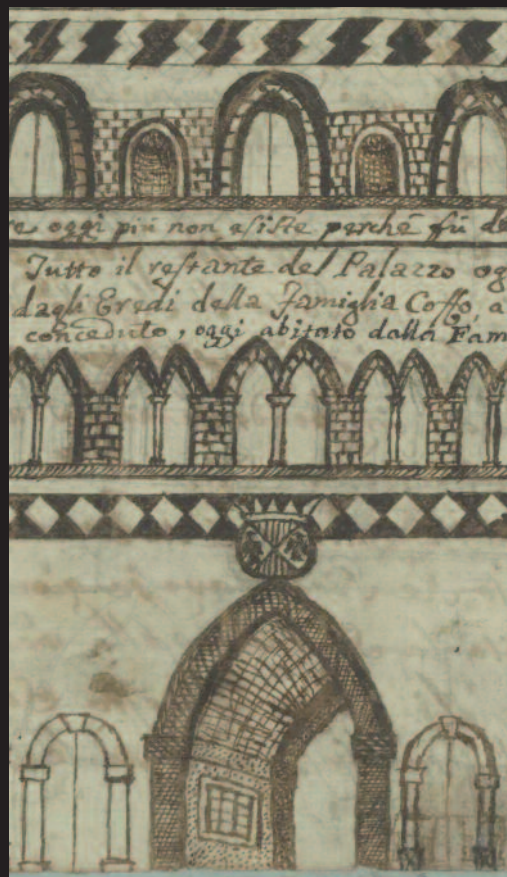 re oggi più non esiste perchè fù de
Tutto il restante del Palazzo og
dagli Eredi della Famiglia Coffo, a
conceduto, oggi abitato dalla Fam